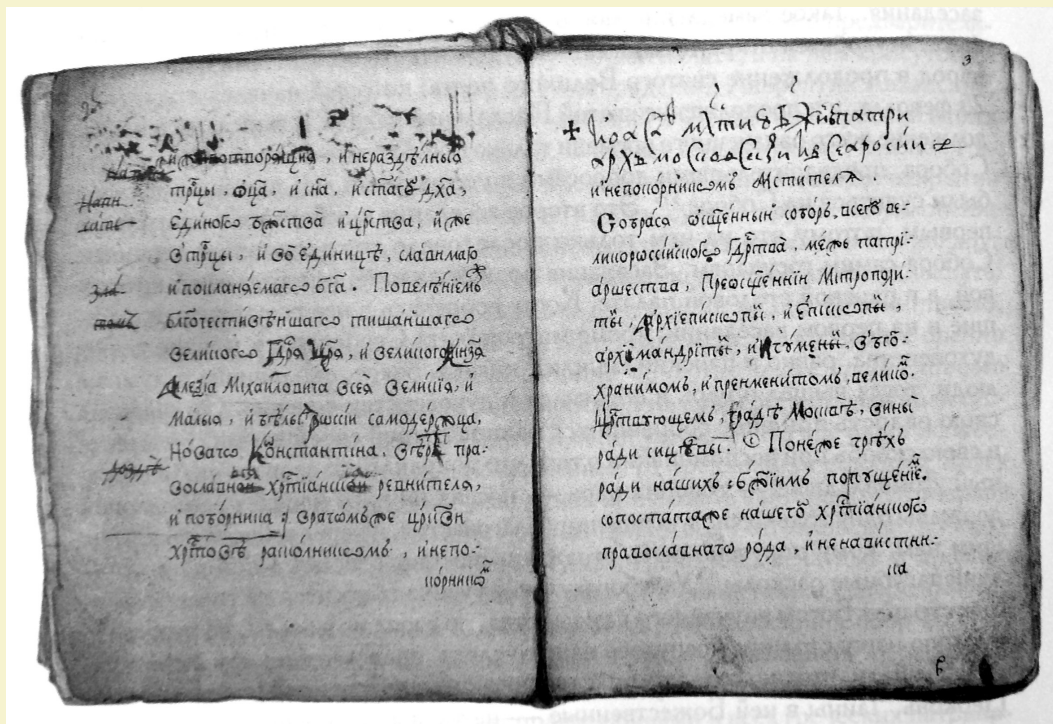 и животворящия, и нераздѣлныя
трⷪ҇цы, ѻц҃а, и сн҃а, и ст҃агѡ дх҃а,
Единогѡ бжⷭ҇тва̀ и црⷭ҇тва, и́же
в трⷪ҇цы, и во є҆дини́цѣ, сла́вимагѡ
и покланѧ́емагѡ бг҃а. Повелѣ́нїемъ
Бл҃гочестивѣ́йшагѡ тиша́йшагѡ
великогѡ Гдⷭ҇рѧ Цр҃ѧ, и великогѡ кнѧ́зѧ
Алеѯі́а Міха́йловича всеѧ̀ вели́кїѧ, и
Ма́лыѧ, и бѣ́лыѧ рѡссі́и самоде́ржца,
Но́вагѡ Кѡнстанті́на. въ вѣ́рѣ пра-
восла́вной хрⷭ҇тїа́нской ревни́телѧ,
и побо́рника, врагѡ́мъ же цр҃кви
хрⷭ҇то́вѣ раско́лникѡмъ, и непо-
ко́рникѡⷨ
з
✠ Иоасаⷴ мл҃стию бж҃иею патри
архъ московски и всеа росиі
и непокорникѡмъ мстителѧ.
Собра́сѧ ѡсщ҃е́нный собо́ръ, всегѡ̀ ве-
ликоро́ссїйскогѡ Гдⷭ҇рства, межъ патрї-
а́ршества, Преѡсщ҃е́ннїи Мітрополі-
ты, А҆рхїепі́скопы, и Е҆пі́скопы,
а҆рхїмандрі́ты, и И҆гу́мены. въ бг҃о-
храни́момъ, и преимени́томъ, вели́коⷨ.
Црⷭ҇твующемъ, гра́дѣ Москвѣ̀, вины̀
ра́ди сицевы̀. Поне́же грѣ́хъ
ра́ди на́шихъ: бж҃їимъ попуще́нїеⷨ.
сопоста́та же на́шегѡ хрⷭ҇тїа́нскогѡ
правосла́внагѡ ро́да, и ненави́стни-
ка